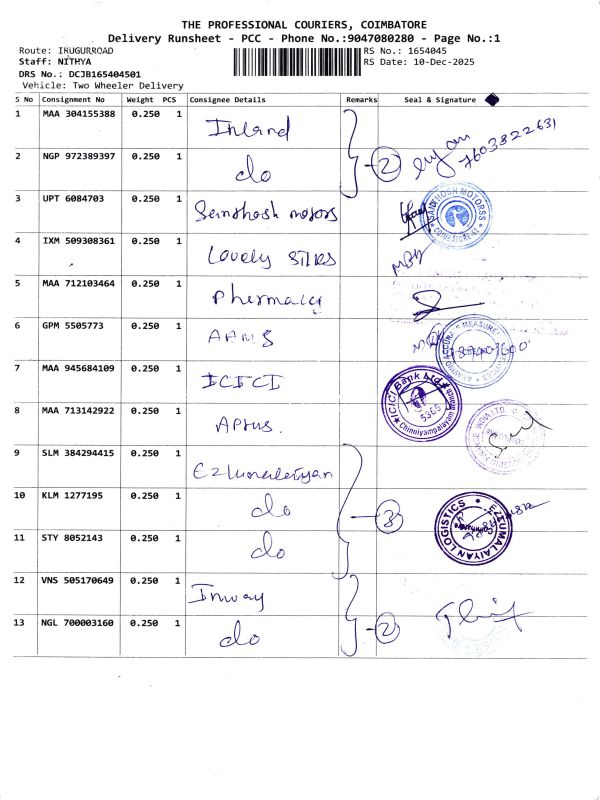 THE PROFESSIONAL COURIERS, COIMBATORE
Delivery Runsheet - PCC - Phone No.:9047080280 - Page No.:1
Route: IRUGURROAD
RS No.: 1654045
Staff: NITHYA
RS Date: 10-Dec-2025
DRS No.: DCJB165404501
Vehicle: Two Wheeler Delivery
S No Consignment No Weight PCS Consignee Details Remarks Seal & Signature
1 MAA 304155388 0.250 1 Inland
2 NGP 972389397 0.250 1 do 2 7603822631
3 UPT 6084703 0.250 1 Santhosh motors
4 IXM 509308361 0.250 1 Lovely
5 MAA 712103464 0.250 1 Pharmacy
6 GPM 5505773 0.250 1
7 MAA 945684109 0.250 1 ICICI ICICI Bank Ltd 5365 Chinniyampalayam
8 MAA 713142922 0.250 1 Aptus.
9 SLM 384294415 0.250 1 Ezhumalaiyan
10 KLM 1277195 0.250 1 do 3 EZHUMALAIYAN LOGISTICS
11 STY 8052143 0.250 1 do
12 VNS 505170649 0.250 1 Inway
13 NGL 700003160 0.250 1 do 2